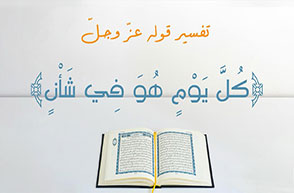 تفسير قوله عزّ وجلّ
﴿كُلَّ يَوْمٍ هُوَ فِي شَأْنٍ﴾